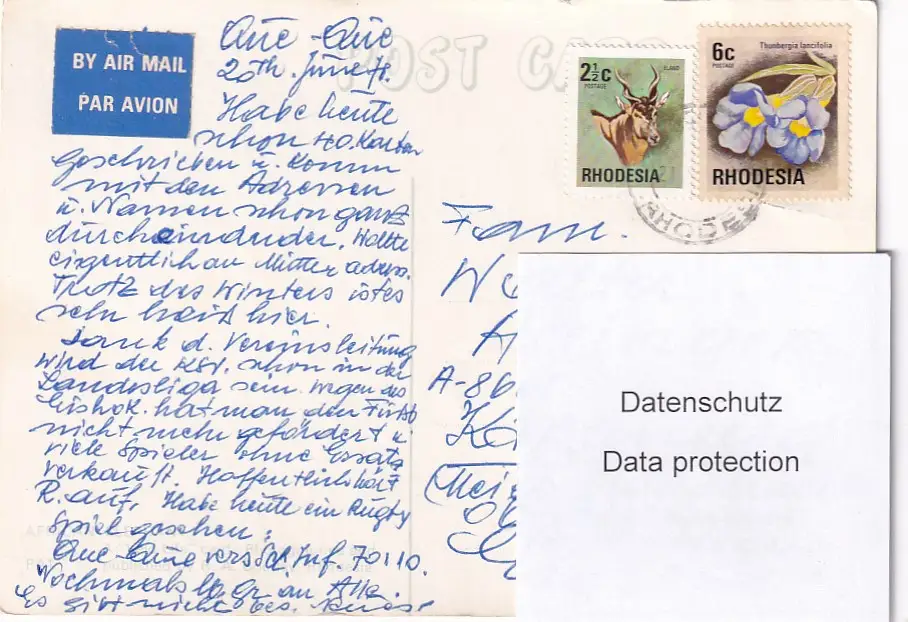 BY AIR MAIL
PAR AVION
POST CA
Que - Que
20th. June
Habe heute
schon 40 Karten
geschrieben u. komm
mit den Adressen
u. Namen schon ganz
durcheinander. Wollte
eigentlich an Mutter adress.
Trotz des Winters ist es
sehr heiß hier.
Dank d. Vereinsleitung
wird der KSV. schon in der
Landesliga sein. Wegen des
Eishok. hat man den Fußb
nicht mehr gefördert u.
viele Spieler ohne Ersatz
verkauft. Hoffentlich hört
R. auf. Habe heute ein Rugby
Spiel gesehen.
Que - Que vers. Sd. Inf. 70:10.
Nochmals lb. Gr. an Alle.
Es gibt nichts bes. Neues!
2½c
POSTAGE
ELAND
RHODESIA
6c
POSTAGE
Thunbergia lancifolia
RHODESIA
RHODE
Fam.
A-86
(Mei
Datenschutz
Data protection